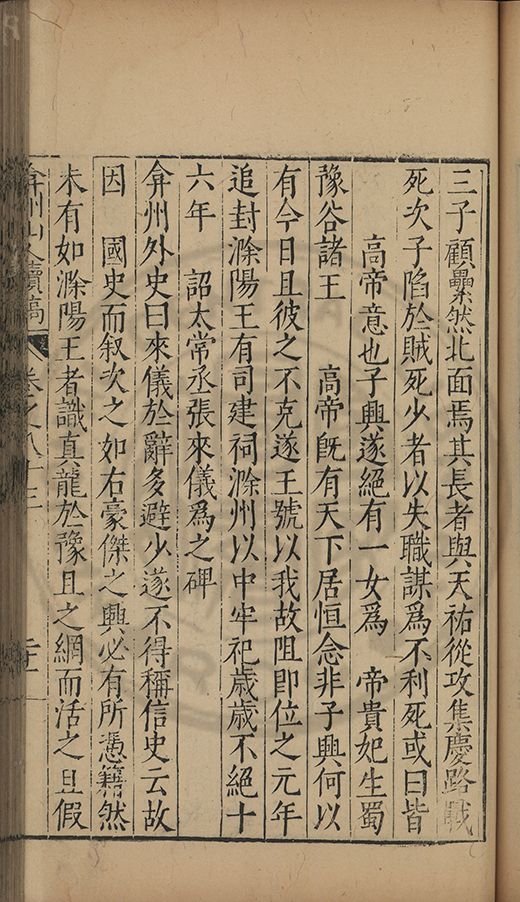 三子顧纍然北面焉其長者與天祐從攻集慶路戰
死次子陷於賊死少者以失職謀爲不利死或曰皆
高帝意也子興遂絕有一女爲　帝貴妃生蜀
豫谷諸王　　高帝既有天下居恒念非子興何以
有今日且彼之不克遂王號以我故阻即位之元年
追封滁陽王有司建祠滁州以中牢祀歲歲不絕十
六年　詔太常丞張來儀爲之碑
弇州外史曰來儀於辭多避少遂不得稱信史云故
因　國史而叙次之如右豪傑之興必有所憑籍然
未有如滁陽王者識真龍於豫且之網而活之且假
弇州山人續稿　卷之八十三